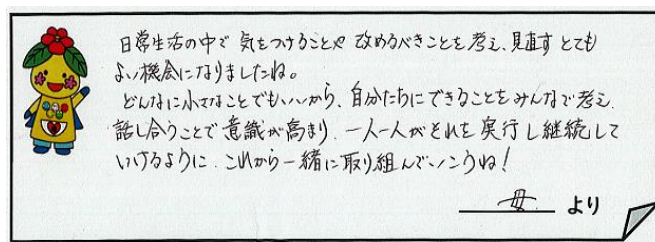 日常生活の中で 気をつけることや 改めるべきことを考え、見直すとても
よい機会になりましたね。
どんなに小さなことでもいいから、自分たちにできることをみんなで考え、
話し合うことで意識が高まり、一人一人がそれを実行し継続して
いけるように、これから一緒に取り組んでいこうね！
母 より